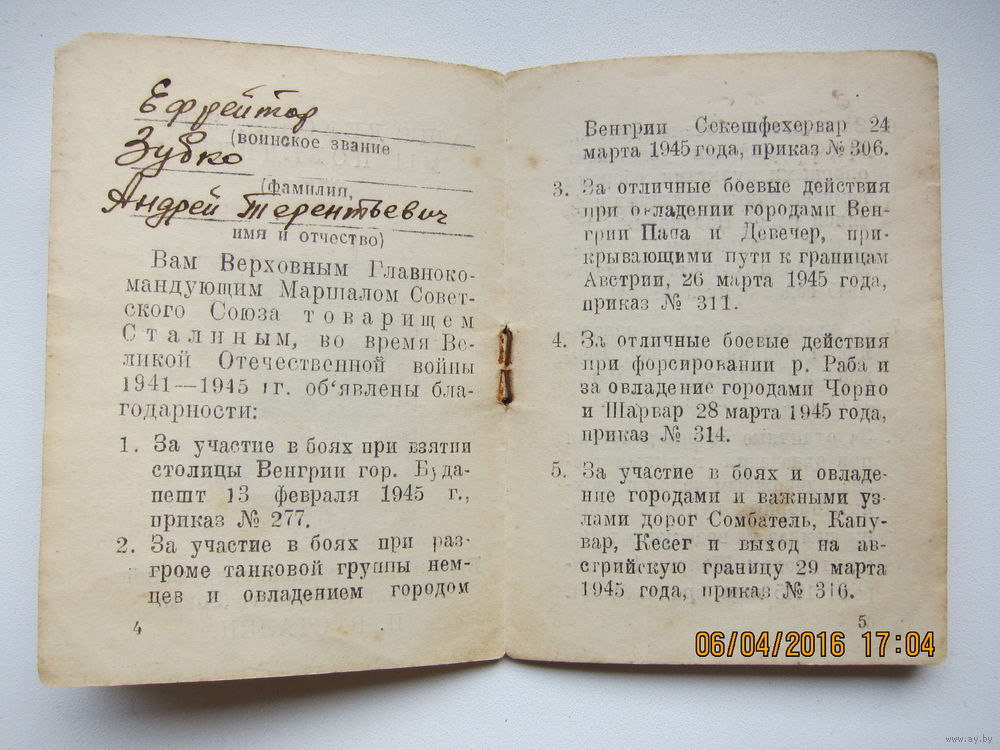 Ефрейтор
(воинское звание
Зубко
(фамилия,
Андрей Терентьевич
имя и отчество)
Вам Верховным Главноко-
мандующим Маршалом Совет-
ского Союза товарищем
Сталиным, во время Ве-
ликой Отечественной войны
1941—1945 гг. об'явлены бла-
годарности:
1. За участие в боях при взятии
столицы Венгрии гор. Буда-
пешт 13 февраля 1945 г.,
приказ № 277.
2. За участие в боях при раз-
громе танковой группы нем-
цев и овладением городом
4
Венгрии Секешфехервар 24
марта 1945 года, приказ № 306.
3. За отличные боевые действия
при овладении городами Вен-
грии Папа и Девечер, при-
крывающими пути к границам
Австрии, 26 марта 1945 года,
приказ № 311.
4. За отличные боевые действия
при форсировании р. Раба и
за овладение городами Чорно
и Шарвар 28 марта 1945 года,
приказ № 314.
5. За участие в боях и овладе-
ние городами и важными уз-
лами дорог Сомбатель, Капу-
вар, Кесег и выход на ав-
стрийскую границу 29 марта
1945 года, приказ № 316.
5
06/04/2016 17:04
www.ay.by